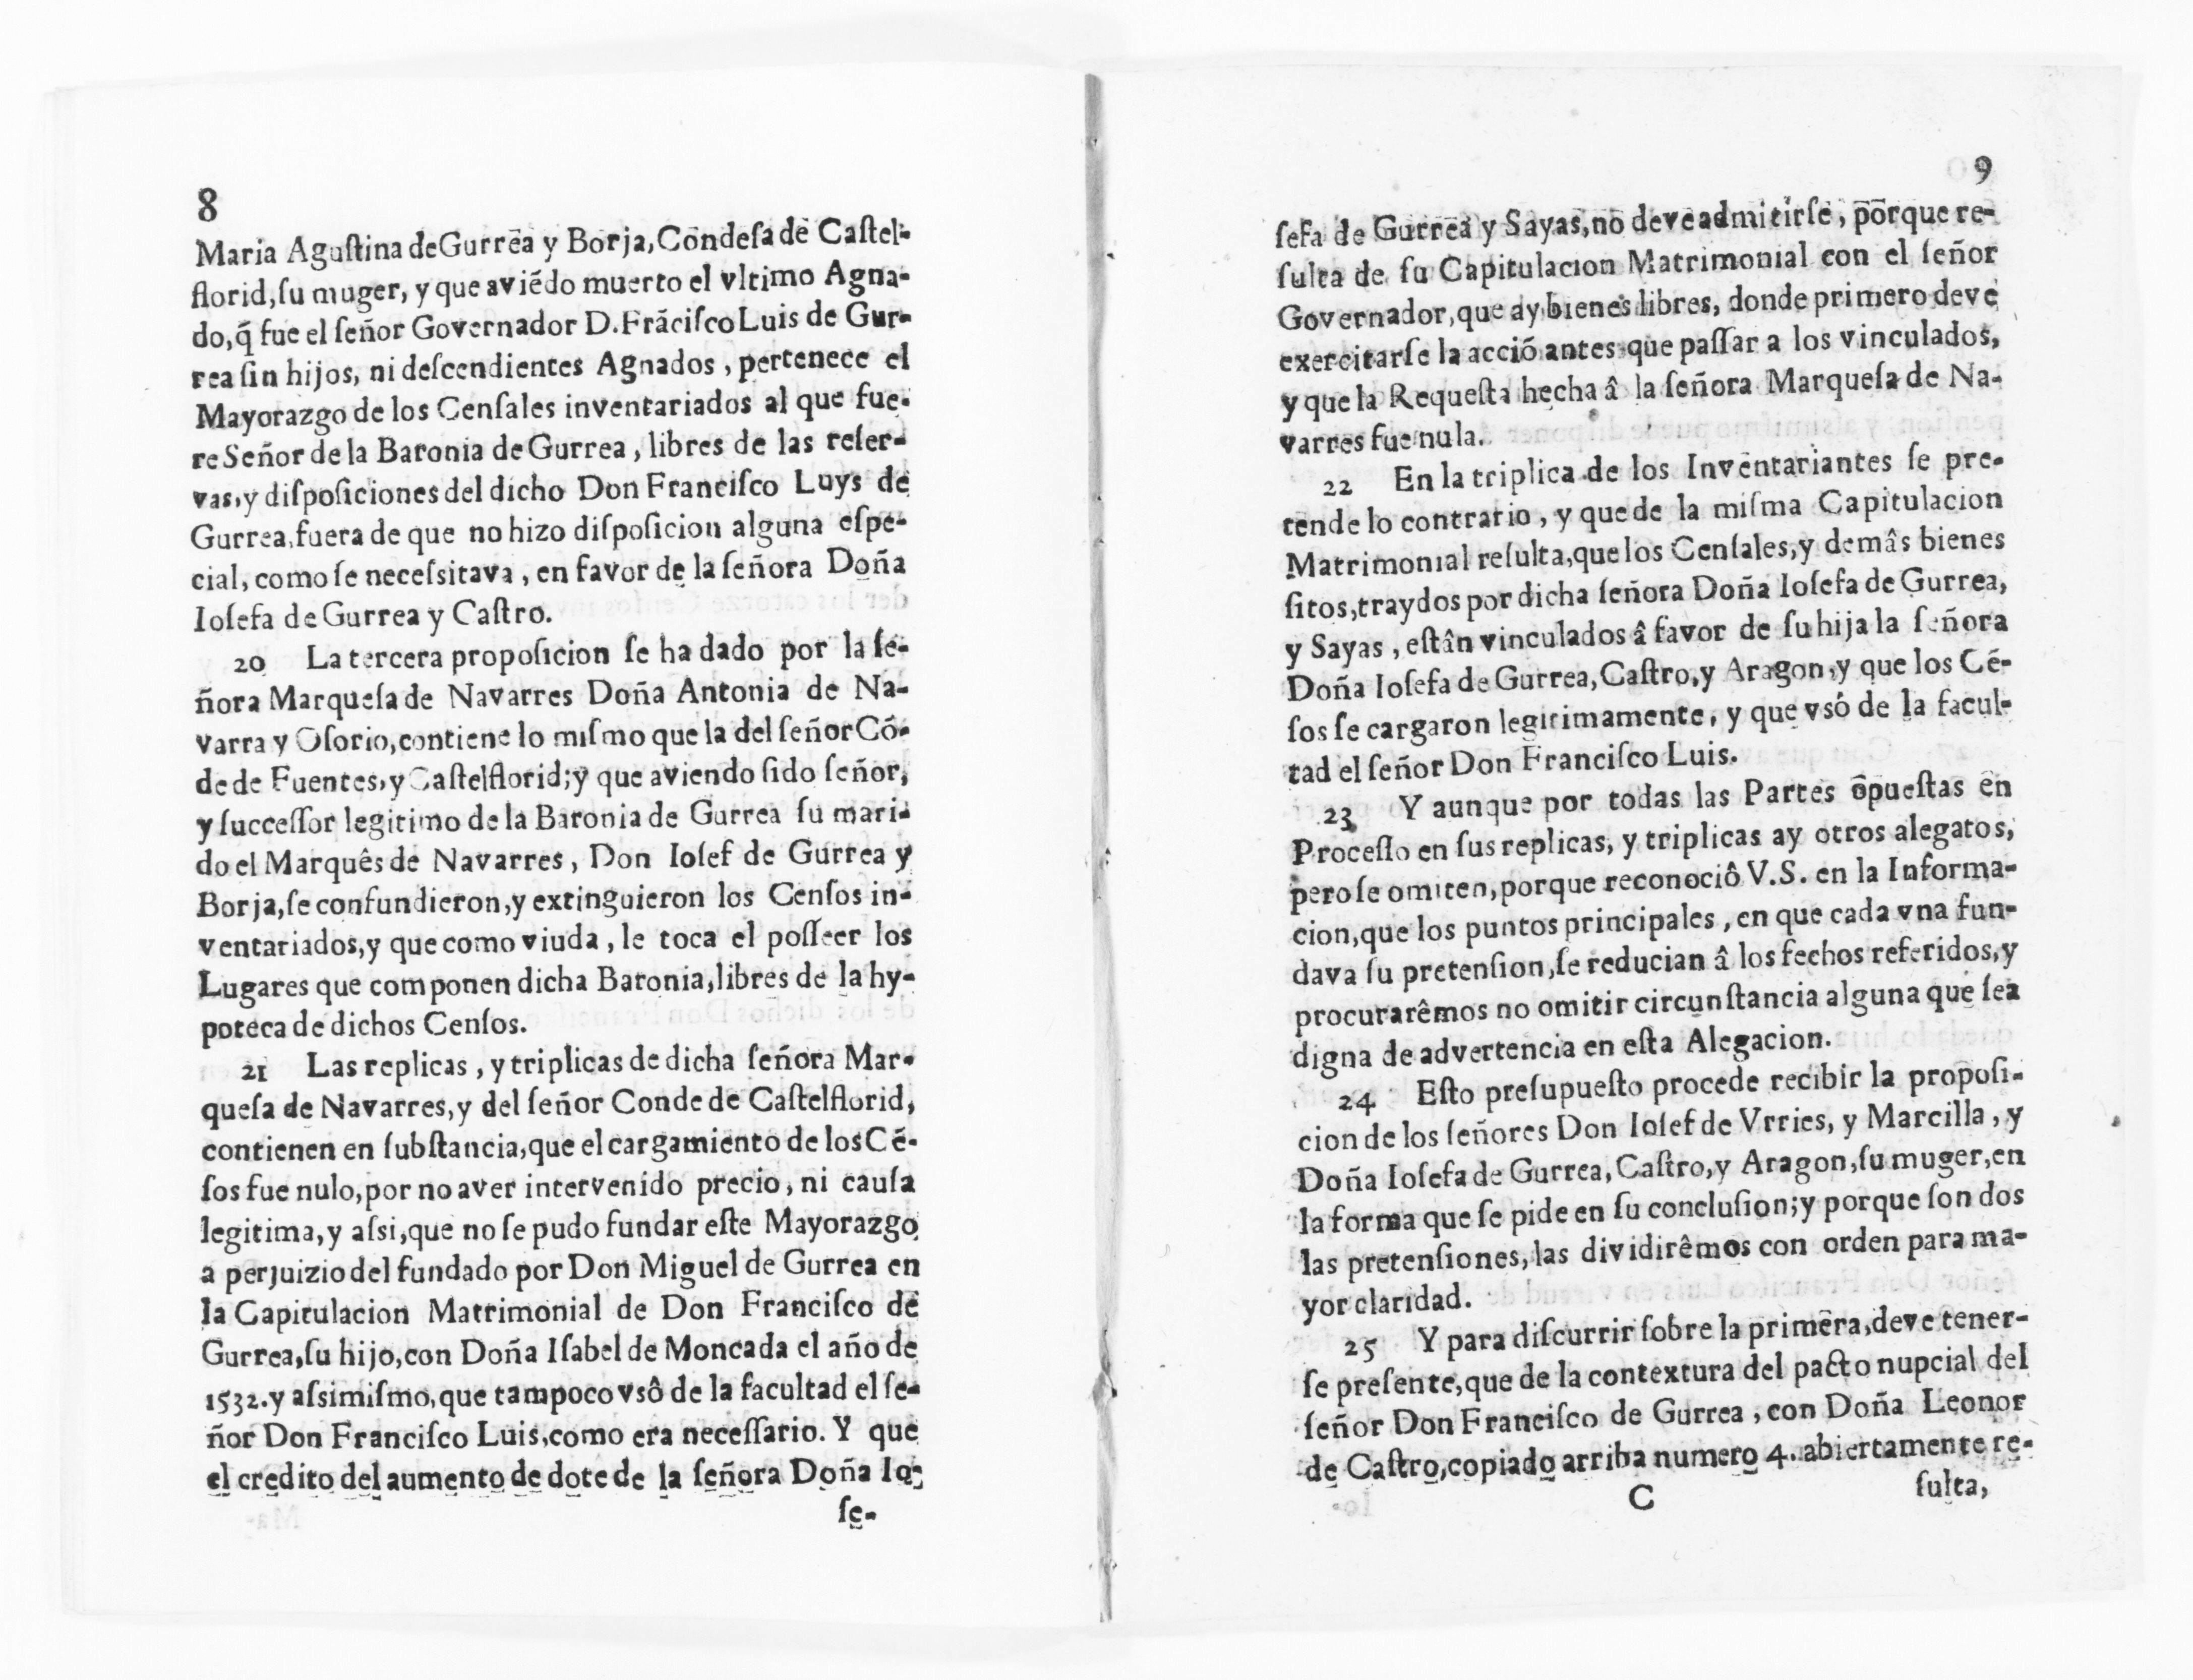 8
Maria Aguſtina de Gurrea y Borja, Condeſa de Caſtel-
florid, ſu muger, y que aviẽdo muerto el vltimo Agna-
do, q̃ fue el ſeñor Governador D. Frãciſco Luis de Gur-
rea ſin hijos, ni deſcendientes Agnados, pertenece el
Mayorazgo de los Cenſales inventariados al que fue-
re Señor de la Baronia de Gurrea, libres de las reſer-
vas, y diſpoſiciones del dicho Don Franciſco Luys de
Gurrea, fuera de que no hizo diſpoſicion alguna eſpe-
cial, como ſe neceſsitava, en favor de la ſeñora Doña
Ioſefa de Gurrea y Caſtro.
20 La tercera propoſicion ſe ha dado por la ſe-
ñora Marqueſa de Navarres Doña Antonia de Na-
varra y Oſorio, contiene lo miſmo que la del ſeñor Cõ-
de de Fuentes, y Caſtelflorid; y que aviendo ſido ſeñor,
y ſucceſſor legitimo de la Baronia de Gurrea ſu mari-
do el Marquês de Navarres, Don Ioſef de Gurrea y
Borja, ſe confundieron, y extinguieron los Cenſos in-
ventariados, y que como viuda, le toca el poſſeer los
Lugares que componen dicha Baronia, libres de la hy-
poteca de dichos Cenſos.
21 Las replicas, y triplicas de dicha ſeñora Mar-
queſa de Navarres, y del ſeñor Conde de Caſtelflorid,
contienen en ſubſtancia, que el cargamiento de los Cẽ-
ſos fue nulo, por no aver intervenido precio, ni cauſa
legitima, y aſsi, que no ſe pudo fundar eſte Mayorazgo
a perjuizio del fundado por Don Miguel de Gurrea en
la Capitulacion Matrimonial de Don Franciſco de
Gurrea, ſu hijo, con Doña Iſabel de Moncada el año de
1532. y aſsimiſmo, que tampoco vsô de la facultad el ſe-
ñor Don Franciſco Luis, como era neceſſario. Y que
el credito del aumento de dote de la ſeñora Doña Io-
ſe-
9
ſefa de Gurrea y Sayas, no deve admitirſe, porque re-
ſulta de ſu Capitulacion Matrimonial con el ſeñor
Governador, que ay bienes libres, donde primero deve
exercitarſe la acciõ antes que paſſar a los vinculados,
y que la Requeſta hecha â la ſeñora Marqueſa de Na-
varres fue nula.
22 En la triplica de los Inventariantes ſe pre-
tende lo contrario, y que de la miſma Capitulacion
Matrimonial reſulta, que los Cenſales, y demâs bienes
ſitos, traydos por dicha ſeñora Doña Ioſefa de Gurrea,
y Sayas, eſtân vinculados â favor de ſu hija la ſeñora
Doña Ioſefa de Gurrea, Caſtro, y Aragon, y que los Cẽ-
ſos ſe cargaron legitimamente, y que vsô de la facul-
tad el ſeñor Don Franciſco Luis.
23 Y aunque por todas las Partes opueſtas en
Proceſſo en ſus replicas, y triplicas ay otros alegatos,
pero ſe omiten, porque reconociô V.S. en la Informa-
cion, que los puntos principales, en que cada vna fun-
dava ſu pretenſion, ſe reducian â los fechos referidos, y
procurarêmos no omitir circunſtancia alguna que ſea
digna de advertencia en eſta Alegacion.
24 Eſto preſupueſto procede recibir la propoſi-
cion de los ſeñores Don Ioſef de Vrries, y Marcilla, y
Doña Ioſefa de Gurrea, Caſtro, y Aragon, ſu muger, en
la forma que ſe pide en ſu concluſion; y porque ſon dos
las pretenſiones, las dividirêmos con orden para ma-
yor claridad.
25 Y para diſcurrir ſobre la primera, deve tener-
ſe preſente, que de la contextura del pacto nupcial del
ſeñor Don Franciſco de Gurrea, con Doña Leonor
de Caſtro, copiado arriba numero 4. abiertamente re-
C ſulta,